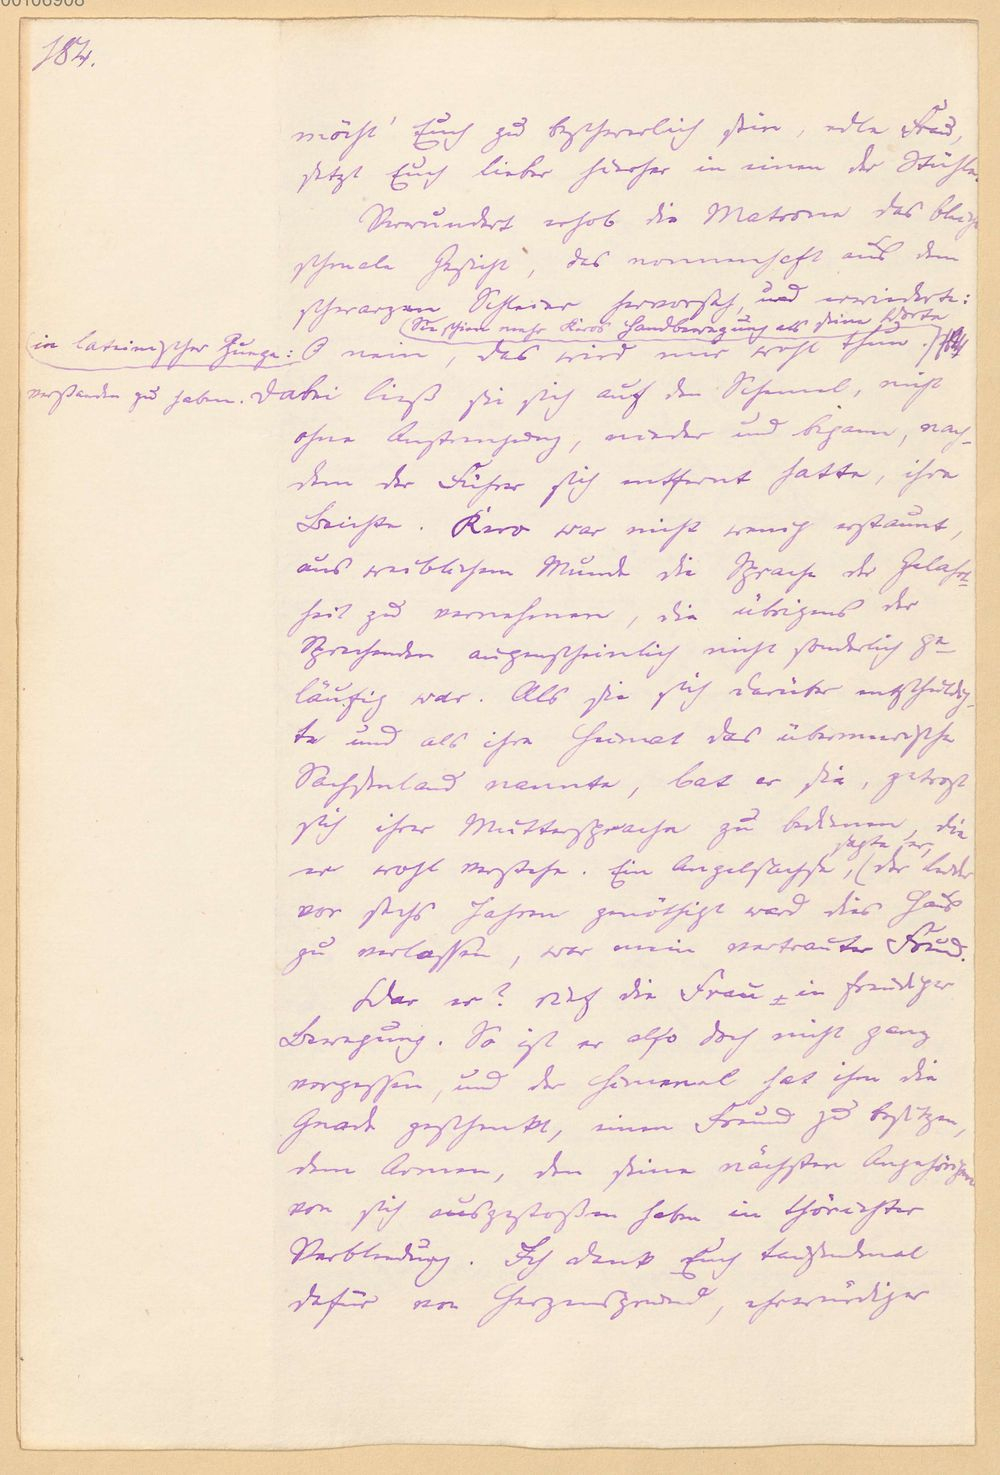 00106908
184.
möcht' Euch zu beschwerlich sein, edle Frau,
setzt Euch lieber hierher in einen der Stühle.
Verwundert erhob die Matrone das bleiche
schmale Gesicht, das nonnenhaft aus dem
schwarzen Schleier hervorsah, und erwiderte:
(Sie schien mehr Keros Handbewegung als seine Worte
(in lateinischer Zunge: O nein, das wird mir wohl thun.)
verstanden zu haben. Dabei ließ sie sich auf den Schemel, nicht
ohne Anstrengung, nieder und begann, nach-
dem der Führer sich entfernt hatte, ihre
Beichte. Kero war nicht wenig erstaunt,
aus weiblichem Munde die Sprache der Gelahrt-
heit zu vernehmen, die übrigens der
Sprechenden augenscheinlich nicht sonderlich ge-
läufig war. Als sie sich darüber entschuldig-
te und als ihre Heimat das übermeerische
Sachsenland nannte, bat er sie, getrost
sich ihrer Muttersprache zu bedienen, die
er wohl verstehe. Ein Angelsachse, (sagte er, der leider
vor sechs Jahren genöthigt ward dies Haus
zu verlassen, war mein vertrauter Freund.
War er? rief die Frau in freudiger
Bewegung. So ist er also doch nicht ganz
vergessen, und der Himmel hat ihm die
Gnade geschenkt, einen Freund zu besitzen,
dem Armen, den seine nächsten Angehörigen
von sich ausgestoßen haben in thörichter
Verblendung. Ich dank Euch tausendmal
dafür von Herzensgrund, ehrwürdiger